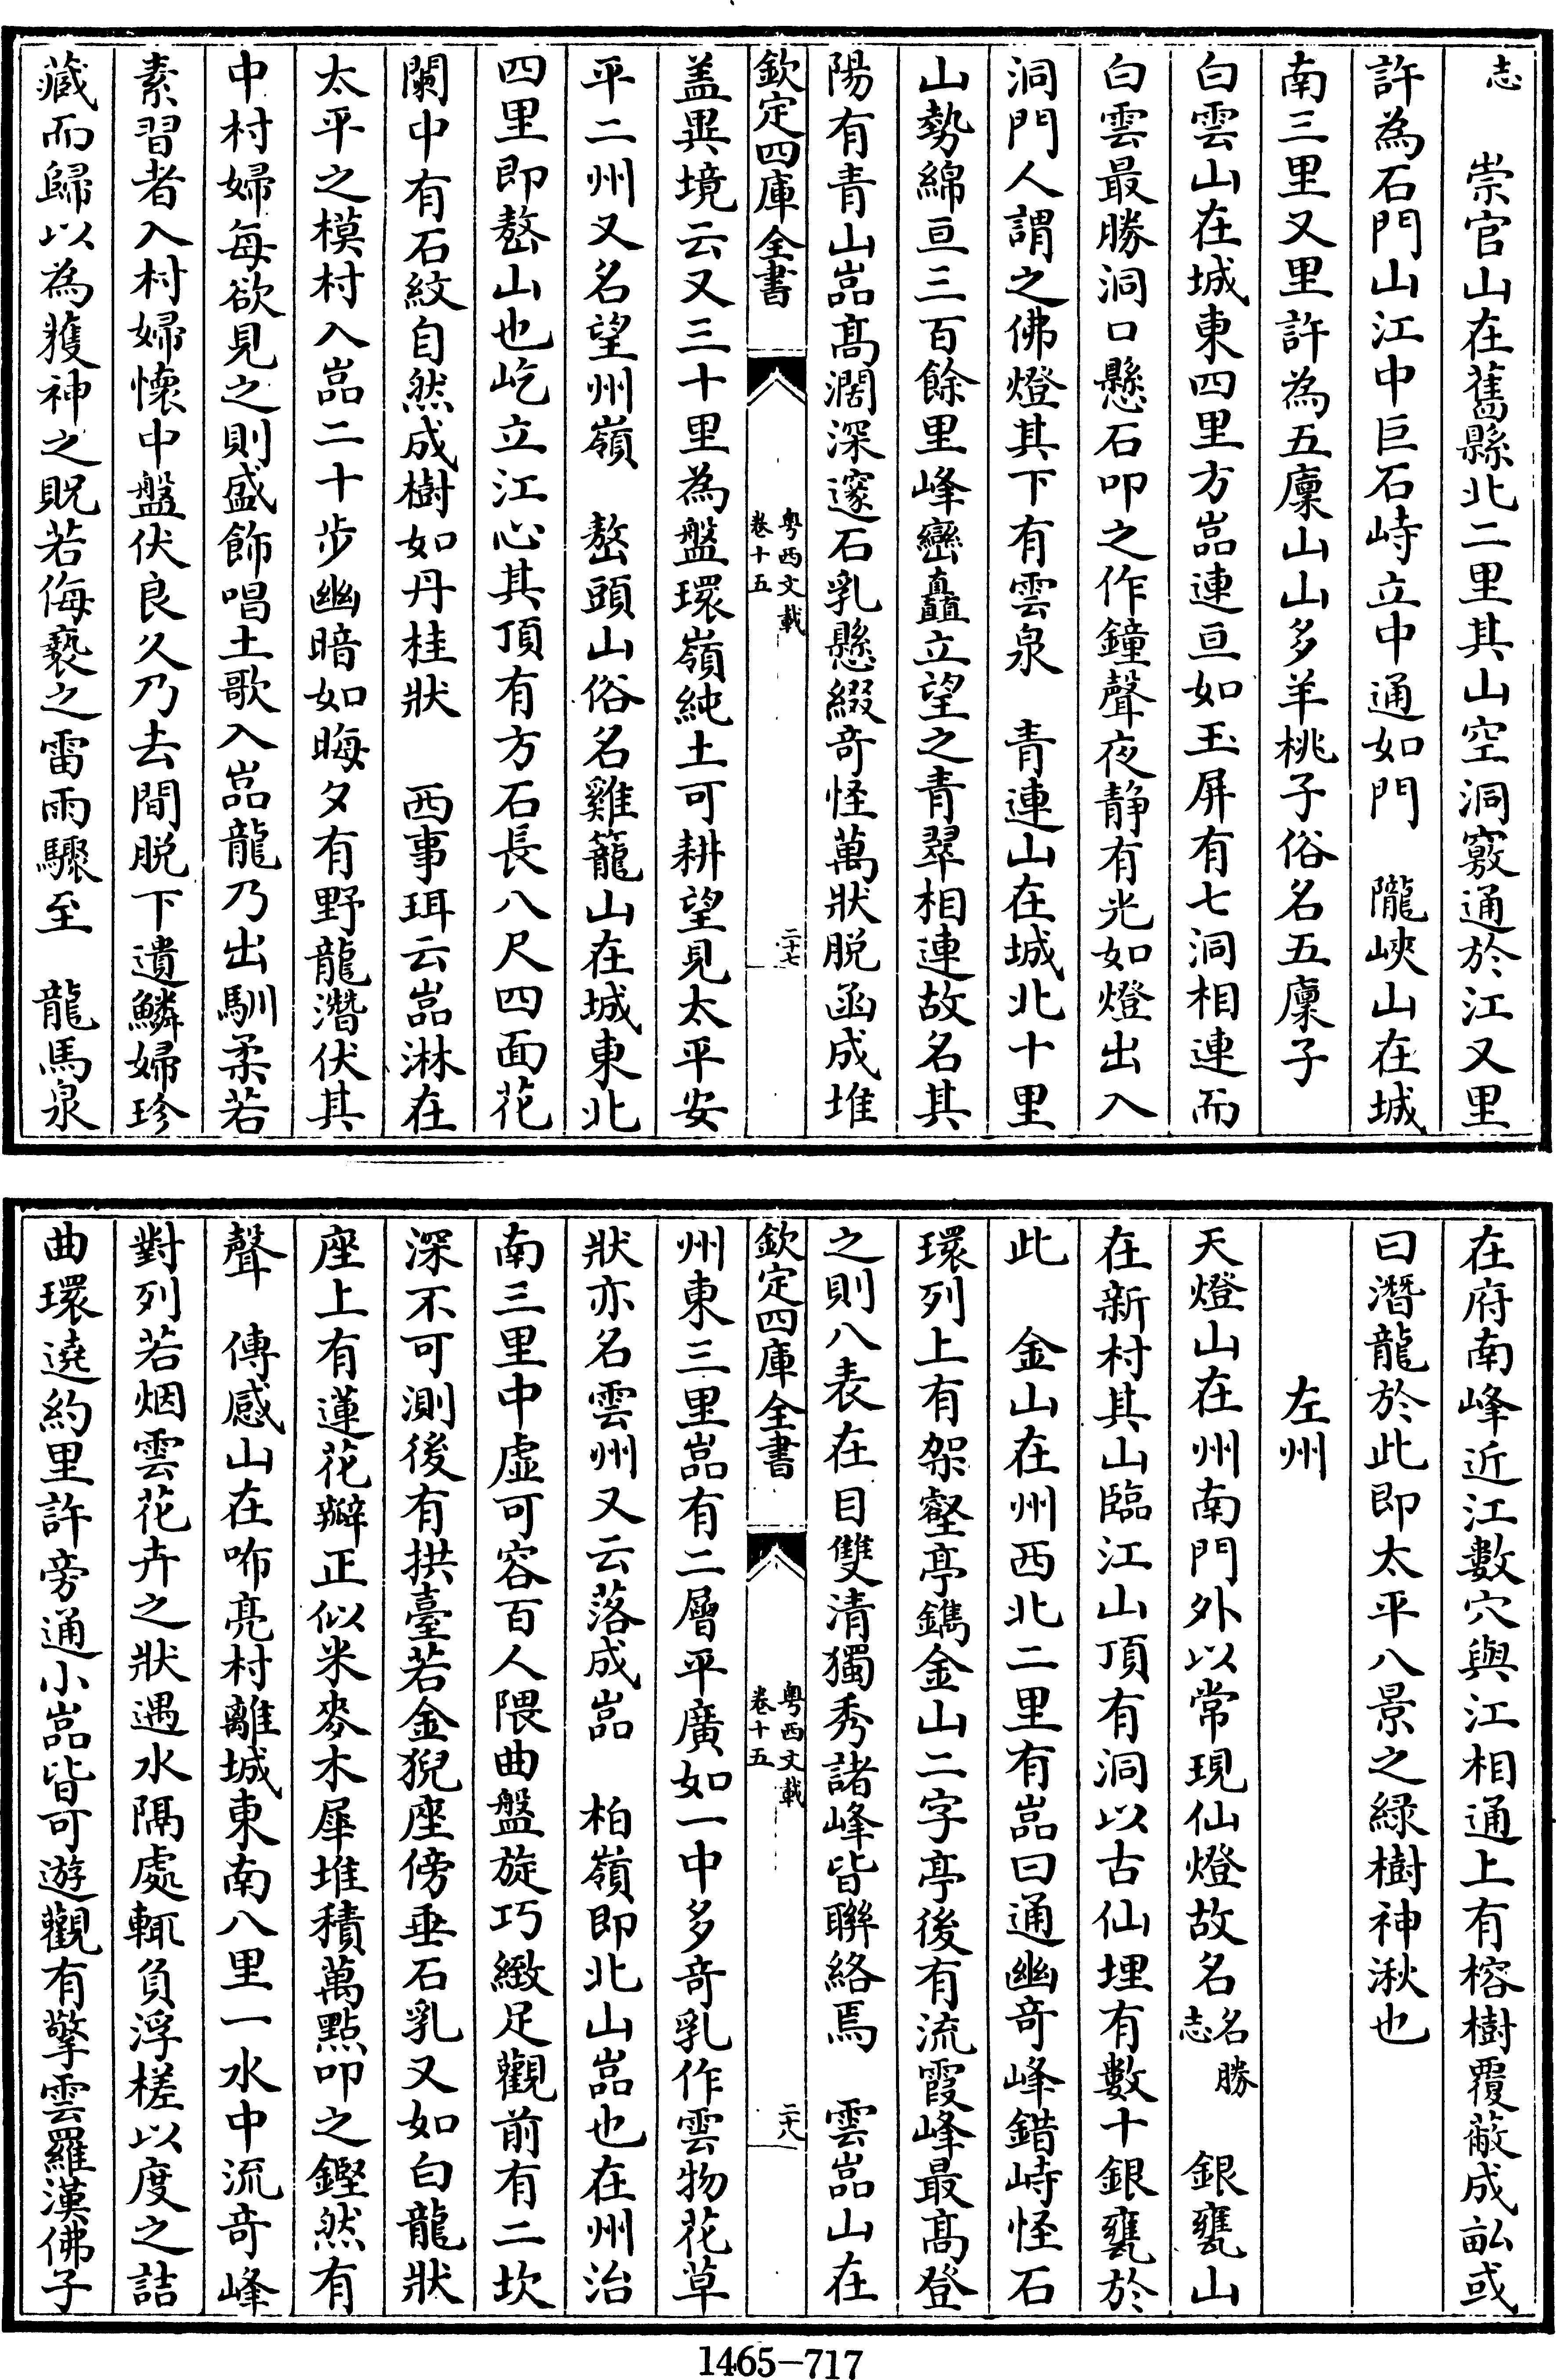 志　崇官山在舊縣北二里其山空洞竅通於江又里
許為石門山江中巨石峙立中通如門　隴峽山在城
南三里又里許為五廩山山多羊桃子俗名五廩子
白雲山在城東四里方嵒連亘如玉屏有七洞相連而
白雲最勝洞口懸石叩之作鐘聲夜静有光如燈出入
洞門人謂之佛燈其下有雲泉　青連山在城北十里
山勢綿亘三百餘里峰巒矗立望之青翠相連故名其
陽有青山嵒髙濶深邃石乳懸綴竒怪萬狀脱函成堆
欽定四庫全書
粤西文載
卷十五
二十七
盖異境云又三十里為盤環嶺純土可耕望見太平安
平二州又名望州嶺　嶅頭山俗名雞籠山在城東北
四里即嶅山也屹立江心其頂有方石長八尺四面花
闌中有石紋自然成樹如丹桂狀　西事珥云嵒淋在
太平之模村入嵒二十步幽暗如晦夕有野龍潛伏其
中村婦每欲見之則盛飾唱土歌入嵒龍乃出馴柔若
素習者入村婦懷中盤伏良久乃去間脱下遺鱗婦珍
藏而歸以為獲神之貺若侮褻之雷雨驟至　龍馬泉
在府南峰近江數穴與江相通上有榕樹覆蔽成畝或
曰潛龍於此即太平八景之緑樹神湫也
左州
天燈山在州南門外以常現仙燈故名名勝志　銀甕山
在新村其山臨江山頂有洞以古仙埋有數十銀甕於
此　金山在州西北二里有嵒曰通幽竒峰錯峙怪石
環列上有架壑亭鐫金山二字亭後有流霞峰最髙登
之則八表在目雙清獨秀諸峰皆聯絡焉　雲嵒山在
欽定四庫全書
粤西文載
卷十五
二十八
州東三里嵒有二層平廣如一中多竒乳作雲物花草
狀亦名雲州又云落成嵒　柏嶺即北山嵒也在州治
南三里中虚可容百人隈曲盤旋巧緻足觀前有二坎
深不可測後有拱臺若金猊座傍垂石乳又如白龍狀
座上有蓮花瓣正似米麥木犀堆積萬點叩之鏗然有
聲　傳感山在咘亮村離城東南八里一水中流竒峰
對列若烟雲花卉之狀遇水隔處輒負浮槎以度之詰
曲環遶約里許旁通小嵒皆可遊觀有擎雲羅漢佛子
1465-717